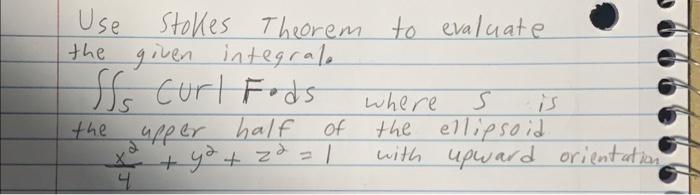 Use Stokes Theorem to evaluate
the given integral.
∬_S Curl F•ds where S is
the upper half of the ellipsoid
x²/4 + y² + z² = 1 with upward orientation